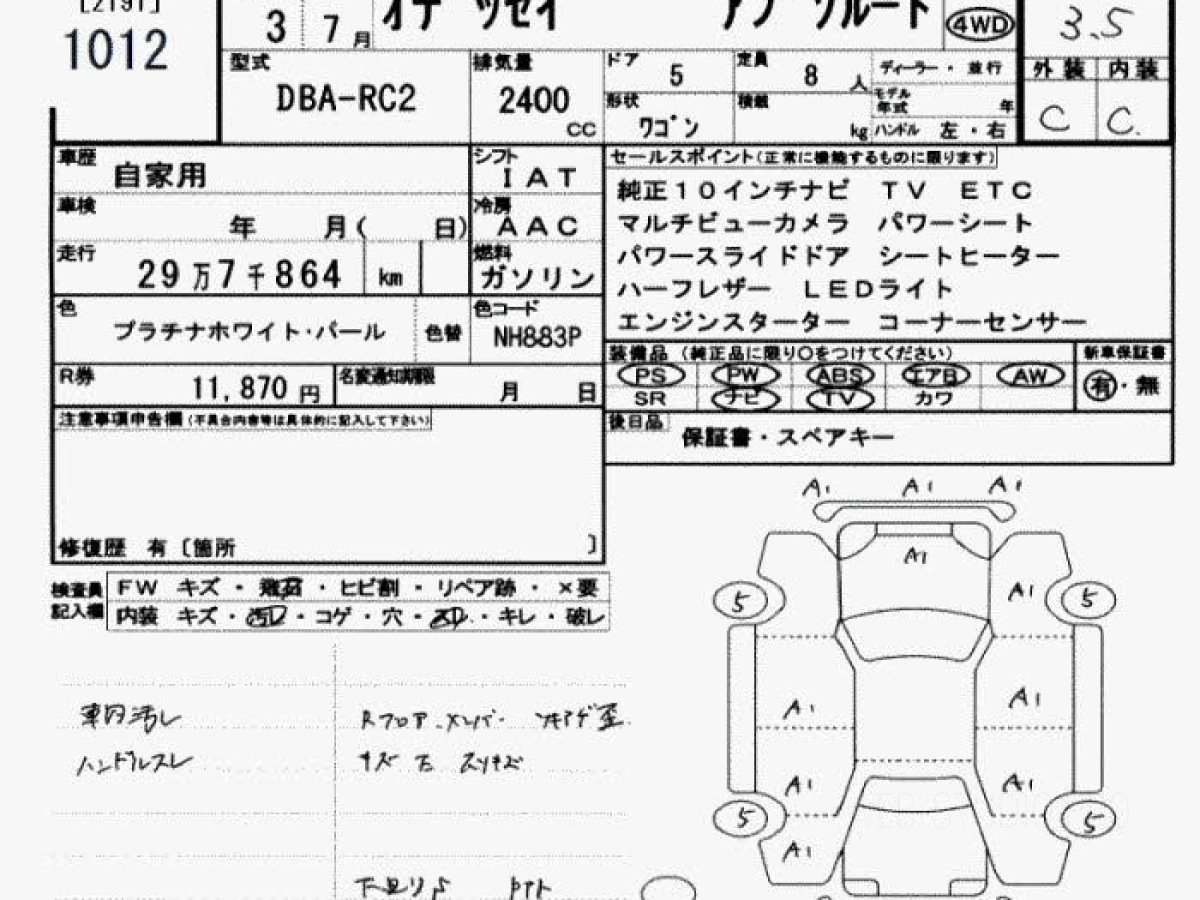 [2191]
1012
3 7月 オデッセイ アブソルート 4WD
3.5
型式 DBA-RC2
排気量 2400 CC
ドア 5
定員 8 人
ディーラー・並行
形状 ワゴン
積載 kg
モデル年式 年
ハンドル 左・右
外装 内装
C C.
車歴 自家用
シフト IAT
車検 年 月( 日)
冷房 AAC
走行 29万7千864 km
燃料 ガソリン
色 プラチナホワイト・パール 色替
色コード NH883P
R券 11,870 円
名変通知期限 月 日
注意事項申告欄(不具合内容等は具体的に記入して下さい)
修復歴 有〔箇所 〕
セールスポイント(正常に機能するものに限ります)
純正10インチナビ TV ETC
マルチビューカメラ パワーシート
パワースライドドア シートヒーター
ハーフレザー LEDライト
エンジンスターター コーナーセンサー
装備品 (純正品に限り○をつけてください)
PS PW ABS エアB AW
SR ナビ TV カワ
新車保証書
有・無
後日品 保証書・スペアキー
検査員記入欄
FW キズ・飛石・ヒビ割・リペア跡・×要
内装 キズ・汚レ・コゲ・穴・スレ・キレ・破レ
車内汚レ
ハンドルスレ
Rフロア・メンバー ツキアゲ歪
キズ 右 スリキズ
下廻りS
A1 A1 A1
A1
A1
5 5
A1 A1
A1 A1
5 5
A1